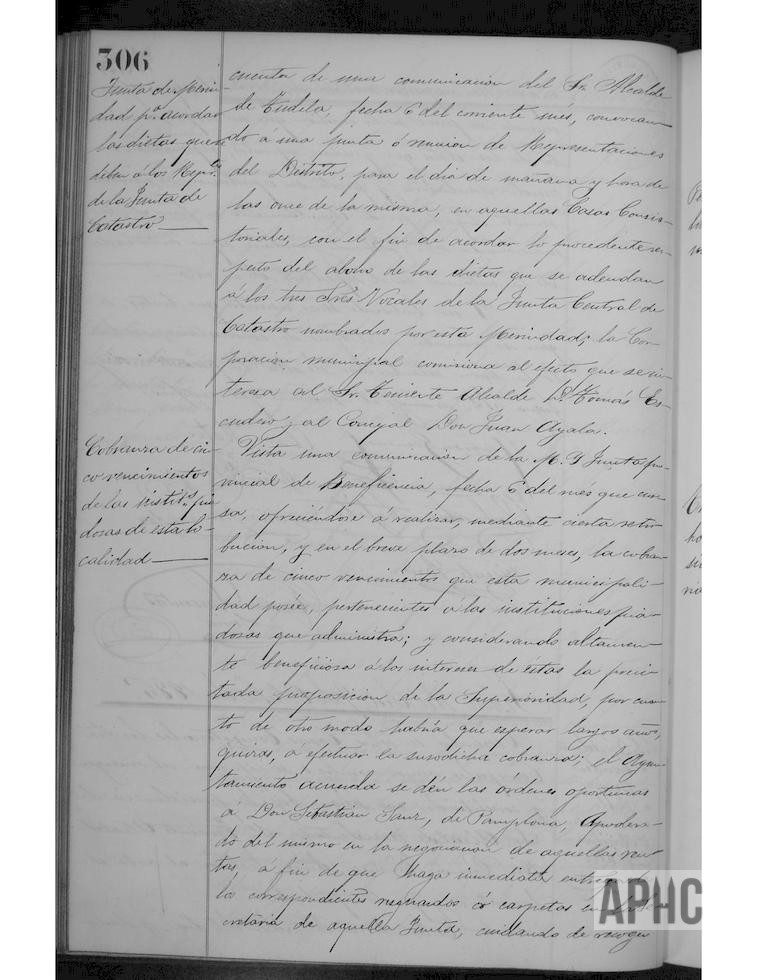 306
Junta de Merin-
dad pª. acordar
las dietas que se
deben á los Repr.tes
de la Junta de
Catastro
cuenta de una comunicación del Sr. Alcalde
de Tudela, fecha 6 del corriente més, convocan-
do á una junta ó reunion de Representaciones
del Distrito, para el dia de mañana y hora de
las once de la misma, en aquellas Casas Consis-
toriales, con el fin de acordar lo procedente res-
pecto del abono de las dietas que se adeudan
á los tres Sres. Vocales de la Junta Central de
Catastro nombrados por esta Merindad; la Cor-
poracion municipal comisiona al efecto que se in-
teresa al Sr. Teniente Alcalde D. Tomás Es-
cudero y al Concejal Don Juan Ayala.
Cobranza de cin-
co vencimientos
de las instit.s pia-
dosas de esta lo-
calidad
Vista una comunicacion de la M. Y. Junta pro-
vincial de Beneficencia, fecha 6 del més que cur-
sa, ofreciéndose á realizar, mediante cierta retri-
bucion, y en el breve plazo de dos meses, la cobran-
za de cinco vencimientos que esta municipali-
dad posée, pertenecientes á las instituciones pia-
dosas que administra; y considerando altamen-
te beneficiosa á los intereses de éstas la preci-
tada proposicion de la Superioridad, por cuan-
to de otro modo habría que esperar largos años,
quizás, á efectuar la susodicha cobranza; el Ayun-
tamiento acuerda se dén las órdenes oportunas
á Don Sebastian Sanz, de Pamplona, Apodera-
do del mismo en la negociacion de aquellas ren-
tas, á fin de que haga inmediata entrega de
los correspondientes resguardos ó carpetas en la Se-
cretaría de aquella Junta, cuidando de recoger
APHC